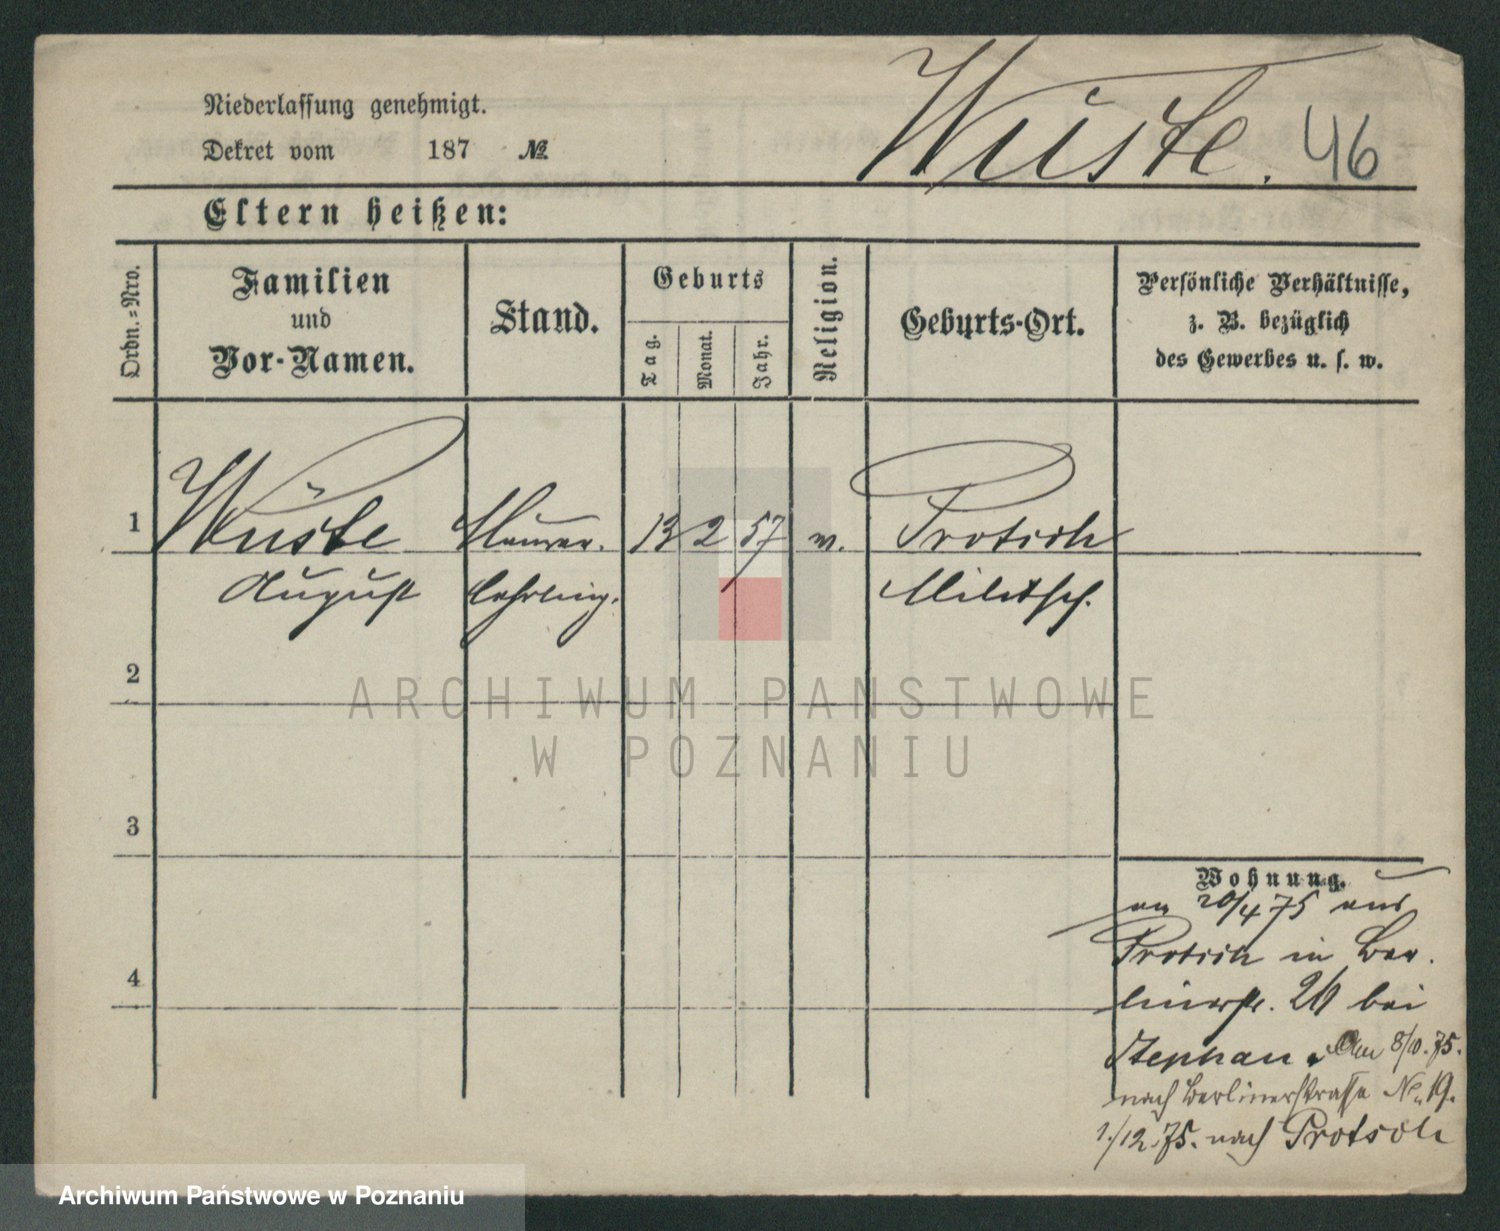 Wüste. 46
Niederlassung genehmigt.
Dekret vom 187 №
Eltern heißen:
Ordn.-Nro.
Familien
und
Vor-Namen.
Stand.
Geburts
Tag.
Monat.
Jahr.
Religion.
Geburts-Ort.
Persönliche Verhältnisse,
z. B. bezüglich
des Gewerbes u. s. w.
1 Wüste Maurer. 13 2 57 Protsch
August lehrling. Militsch.
2
ARCHIWUM PAŃSTWOWE
W POZNANIU
3
4
Wohnung.
20/4 75 aus
Protsch in Ber.
linerstr. 26 bei
Stephan. Am 8/10. 75.
nach Berlinerstrasse No. 19.
1./12.75. nach Protsch
Archiwum Państwowe w Poznaniu